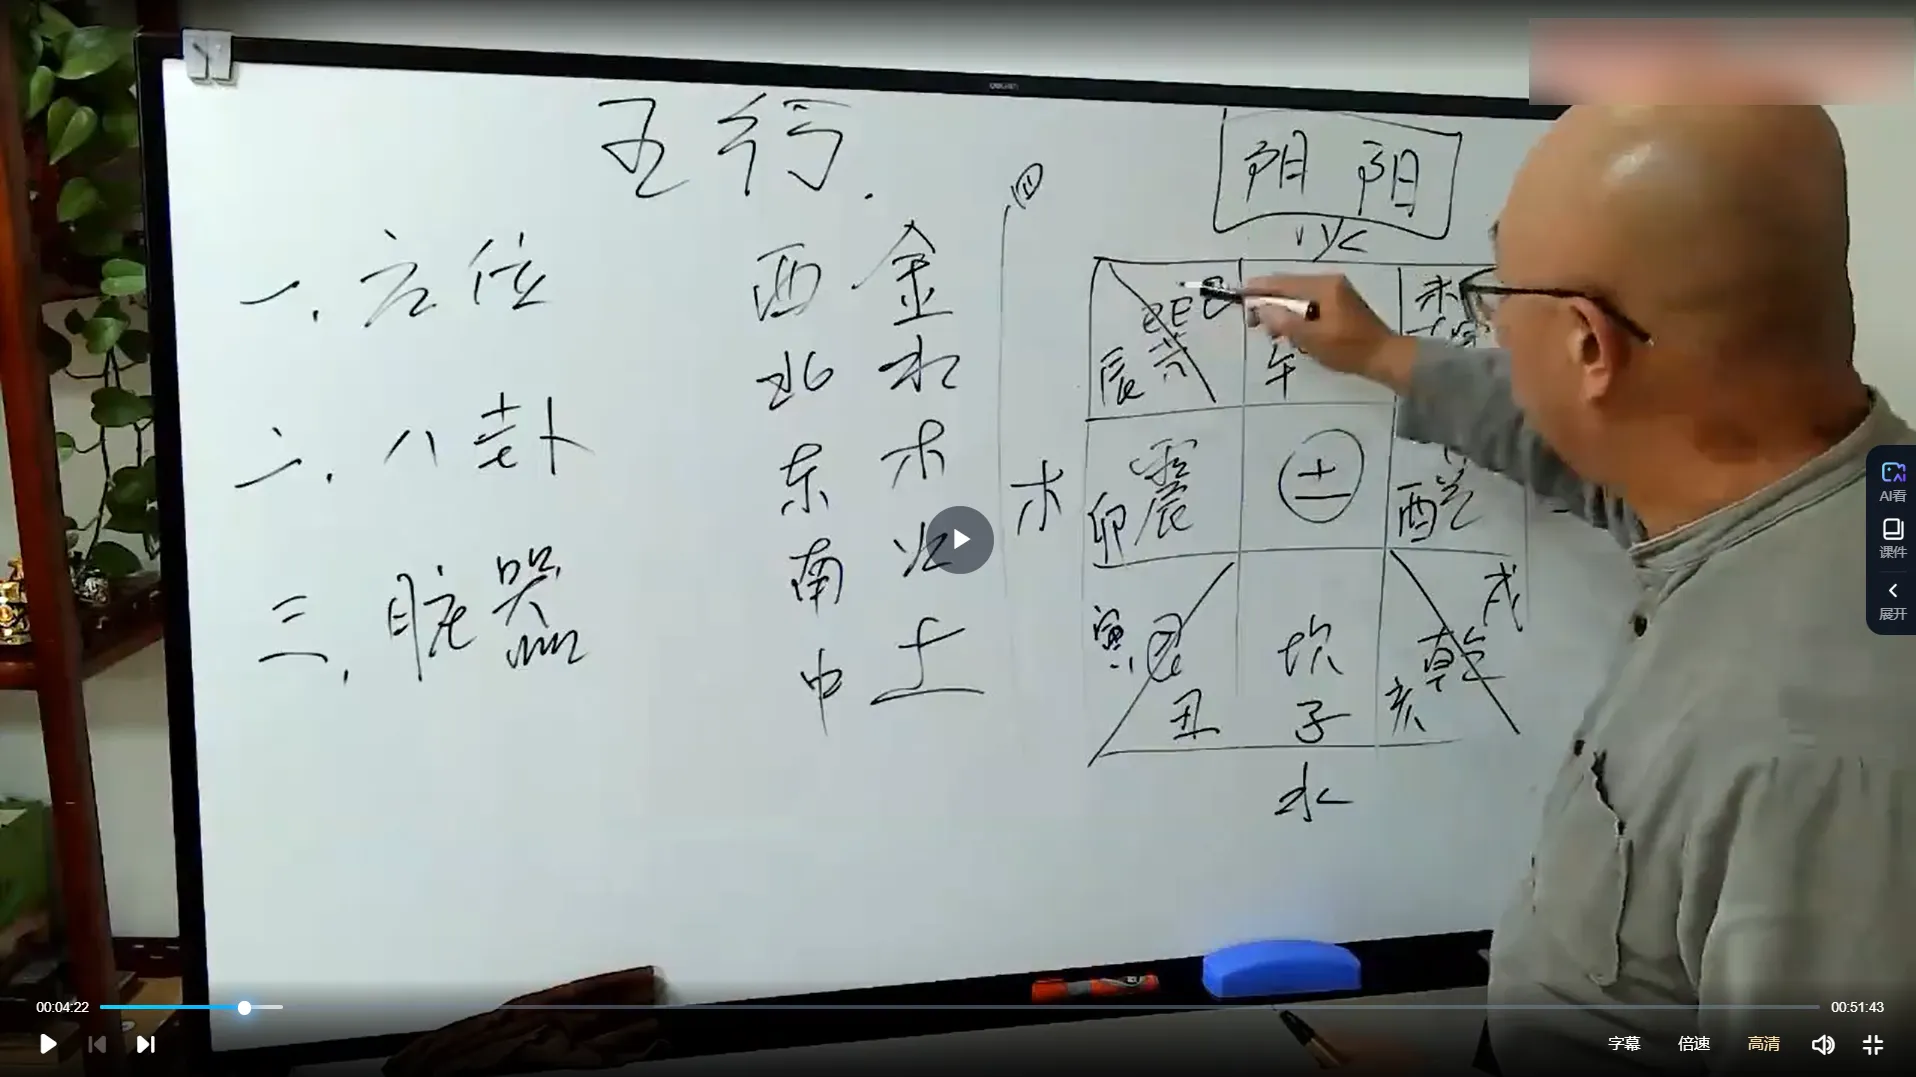 五行.
一. 方位
二. 八卦
三. 脏器
西 金
北 水
东 木
南 火
中 土
四
阴 阳
火
巳
辰 巽
午
木
卯 震
土
酉 兑
寅 艮
丑
坎
子
戌
乾
亥
水
AI看
课件
展开
00:04:22
00:51:43
字幕 倍速 高清